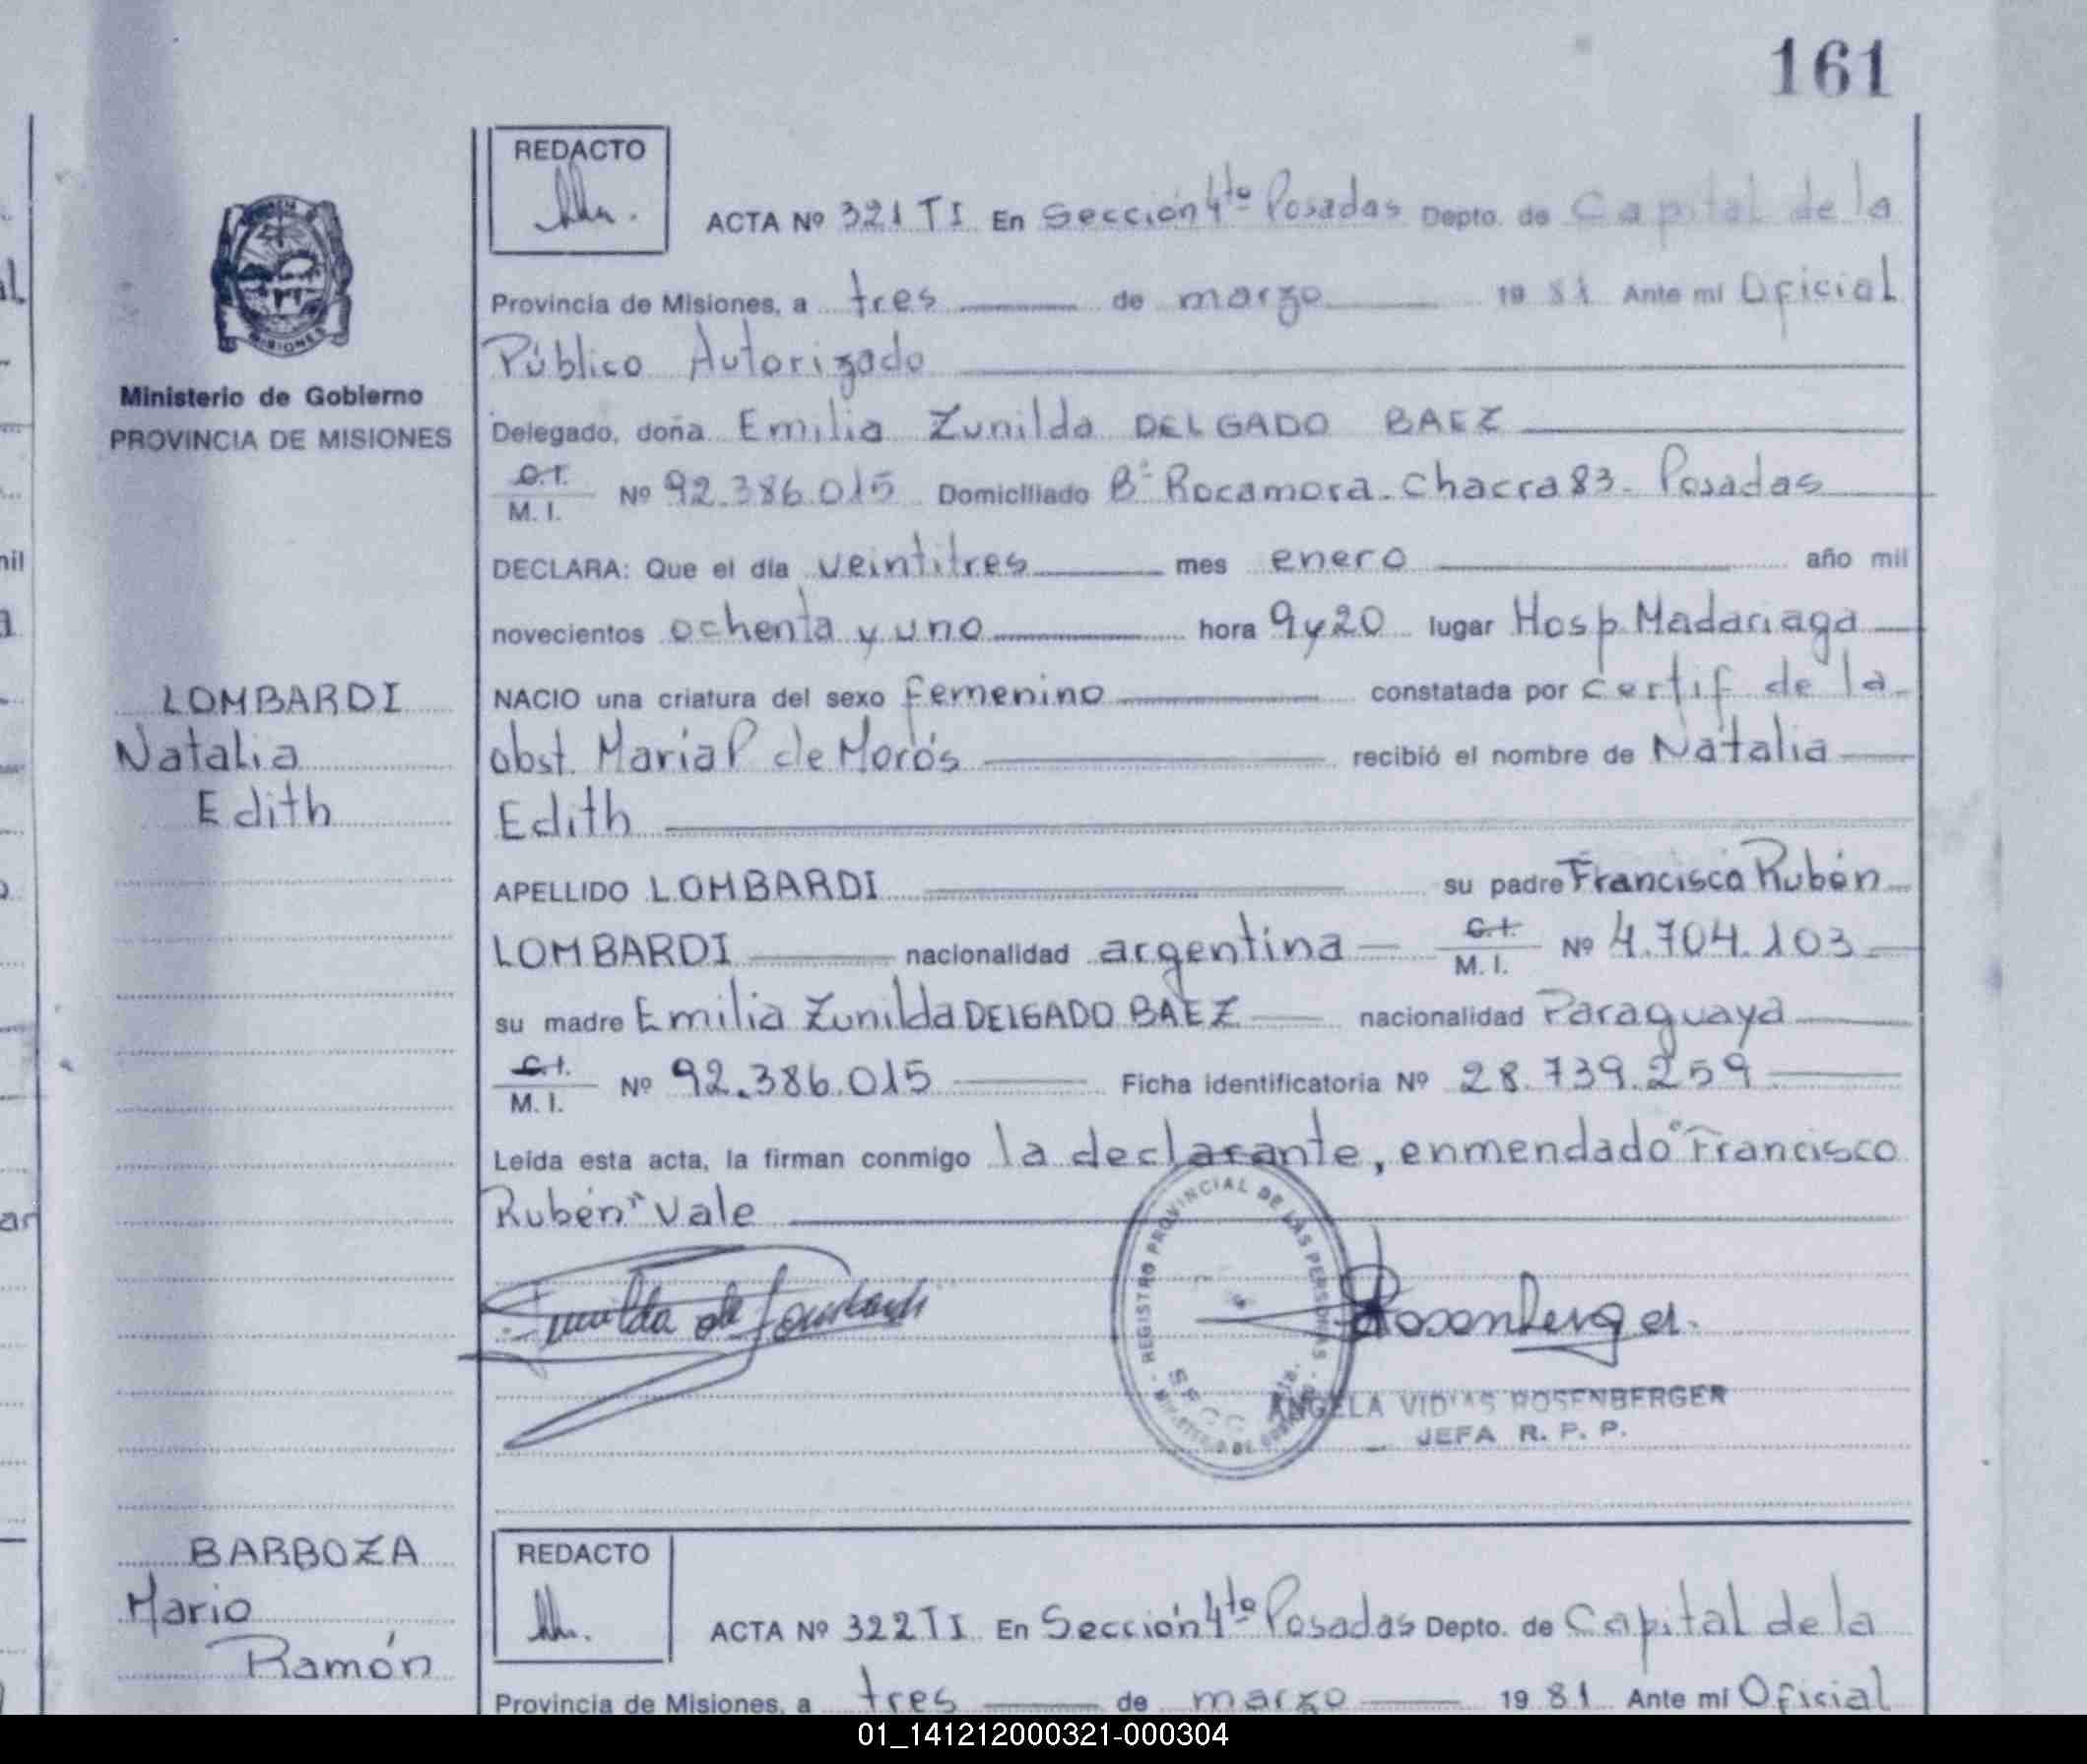 161
REDACTO
ACTA Nº 321 TI En Sección 4ta Posadas Depto. de Capital de la
Provincia de Misiones, a tres de marzo 1981 Ante mi Oficial
Público Autorizado
Ministerio de Gobierno
PROVINCIA DE MISIONES
Delegado, doña Emilia Zunilda DELGADO BAEZ
C.I.
M. I. Nº 92.386.015 Domiciliado Bº Rocamora. Chacra 83. Posadas
DECLARA: Que el día veintitres mes enero año mil
novecientos ochenta y uno hora 9y20 lugar Hosp Madariaga
LOMBARDI
Natalia
Edith
NACIO una criatura del sexo femenino constatada por certif de la
obst. Maria P de Morós recibió el nombre de Natalia
Edith
APELLIDO LOMBARDI su padre Francisco Rubén
LOMBARDI nacionalidad argentina C.I.
M. I. Nº 4.704.103
su madre Emilia Zunilda DELGADO BAEZ nacionalidad Paraguaya
C.I.
M. I. Nº 92.386.015 Ficha identificatoria Nº 28.739.259
Leída esta acta, la firman conmigo la declarante, enmendado "Francisco
Rubén" vale
Zunilda de Lombardi
REGISTRO PROVINCIAL DE LAS PERSONAS
Rosenberger
ANGELA VIDMAS ROSENBERGER
JEFA R. P. P.
BARBOZA
Mario
Ramón
REDACTO
ACTA Nº 322 TI En Sección 4ta Posadas Depto. de Capital de la
Provincia de Misiones, a tres de marzo 1981 Ante mi Oficial
01_141212000321-000304